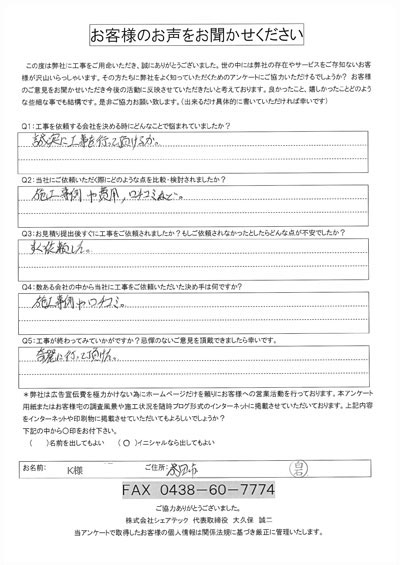 お客様のお声をお聞かせください
この度は弊社に工事をご用命いただき、誠にありがとうございました。世の中には弊社の存在やサービスをご存知ないお客
様が沢山いらっしゃいます。その方たちに弊社をよく知っていただくためのアンケートにご協力いただけるでしょうか? お客様
のご意見をお聞かせいただき今後の活動に反映させていただきたいと考えております。良かったこと、嬉しかったことどのよう
な些細な事でも結構です。是非ご協力お願い致します。（出来るだけ具体的に書いていただければ幸いです）
Q1:工事を依頼する会社を決める時にどんなことで悩まれていましたか?
誠実に工事を行って頂けるか。
Q2:当社にご依頼いただく際にどのような点を比較・検討されましたか?
施工事例や費用,口コミなど。
Q3:お見積り提出後すぐに工事をご依頼されましたか?もしご依頼されなかったとしたらどんな点が不安でしたか?
すぐ依頼した。
Q4:数ある会社の中から当社に工事をご依頼いただいた決め手は何ですか?
施工事例や口コミ。
Q5:工事が終わってみていかがですか?忌憚のないご意見を頂戴できましたら幸いです。
綺麗に行って頂けた。
＊弊社は広告宣伝費を極力かけない為にホームページだけを頼りにお客様への営業活動を行っております。本アンケート
用紙またはお客様宅の調査風景や施工状況を随時ブログ形式のインターネットに掲載させていただいております。上記内容
をインターネットや印刷物に掲載させていただいてもよろしいでしょうか?
下記の中から〇印をお付下さい。
（　）名前を出してもよい　（〇）イニシャルなら出してもよい
お名前: K様 ご住所: 白石
FAX 0438-60-7774
ご協力ありがとうございました。
株式会社シェアテック 代表取締役 大久保 誠二
当アンケートで取得したお客様の個人情報は関係法規に基づき厳正に管理いたします。